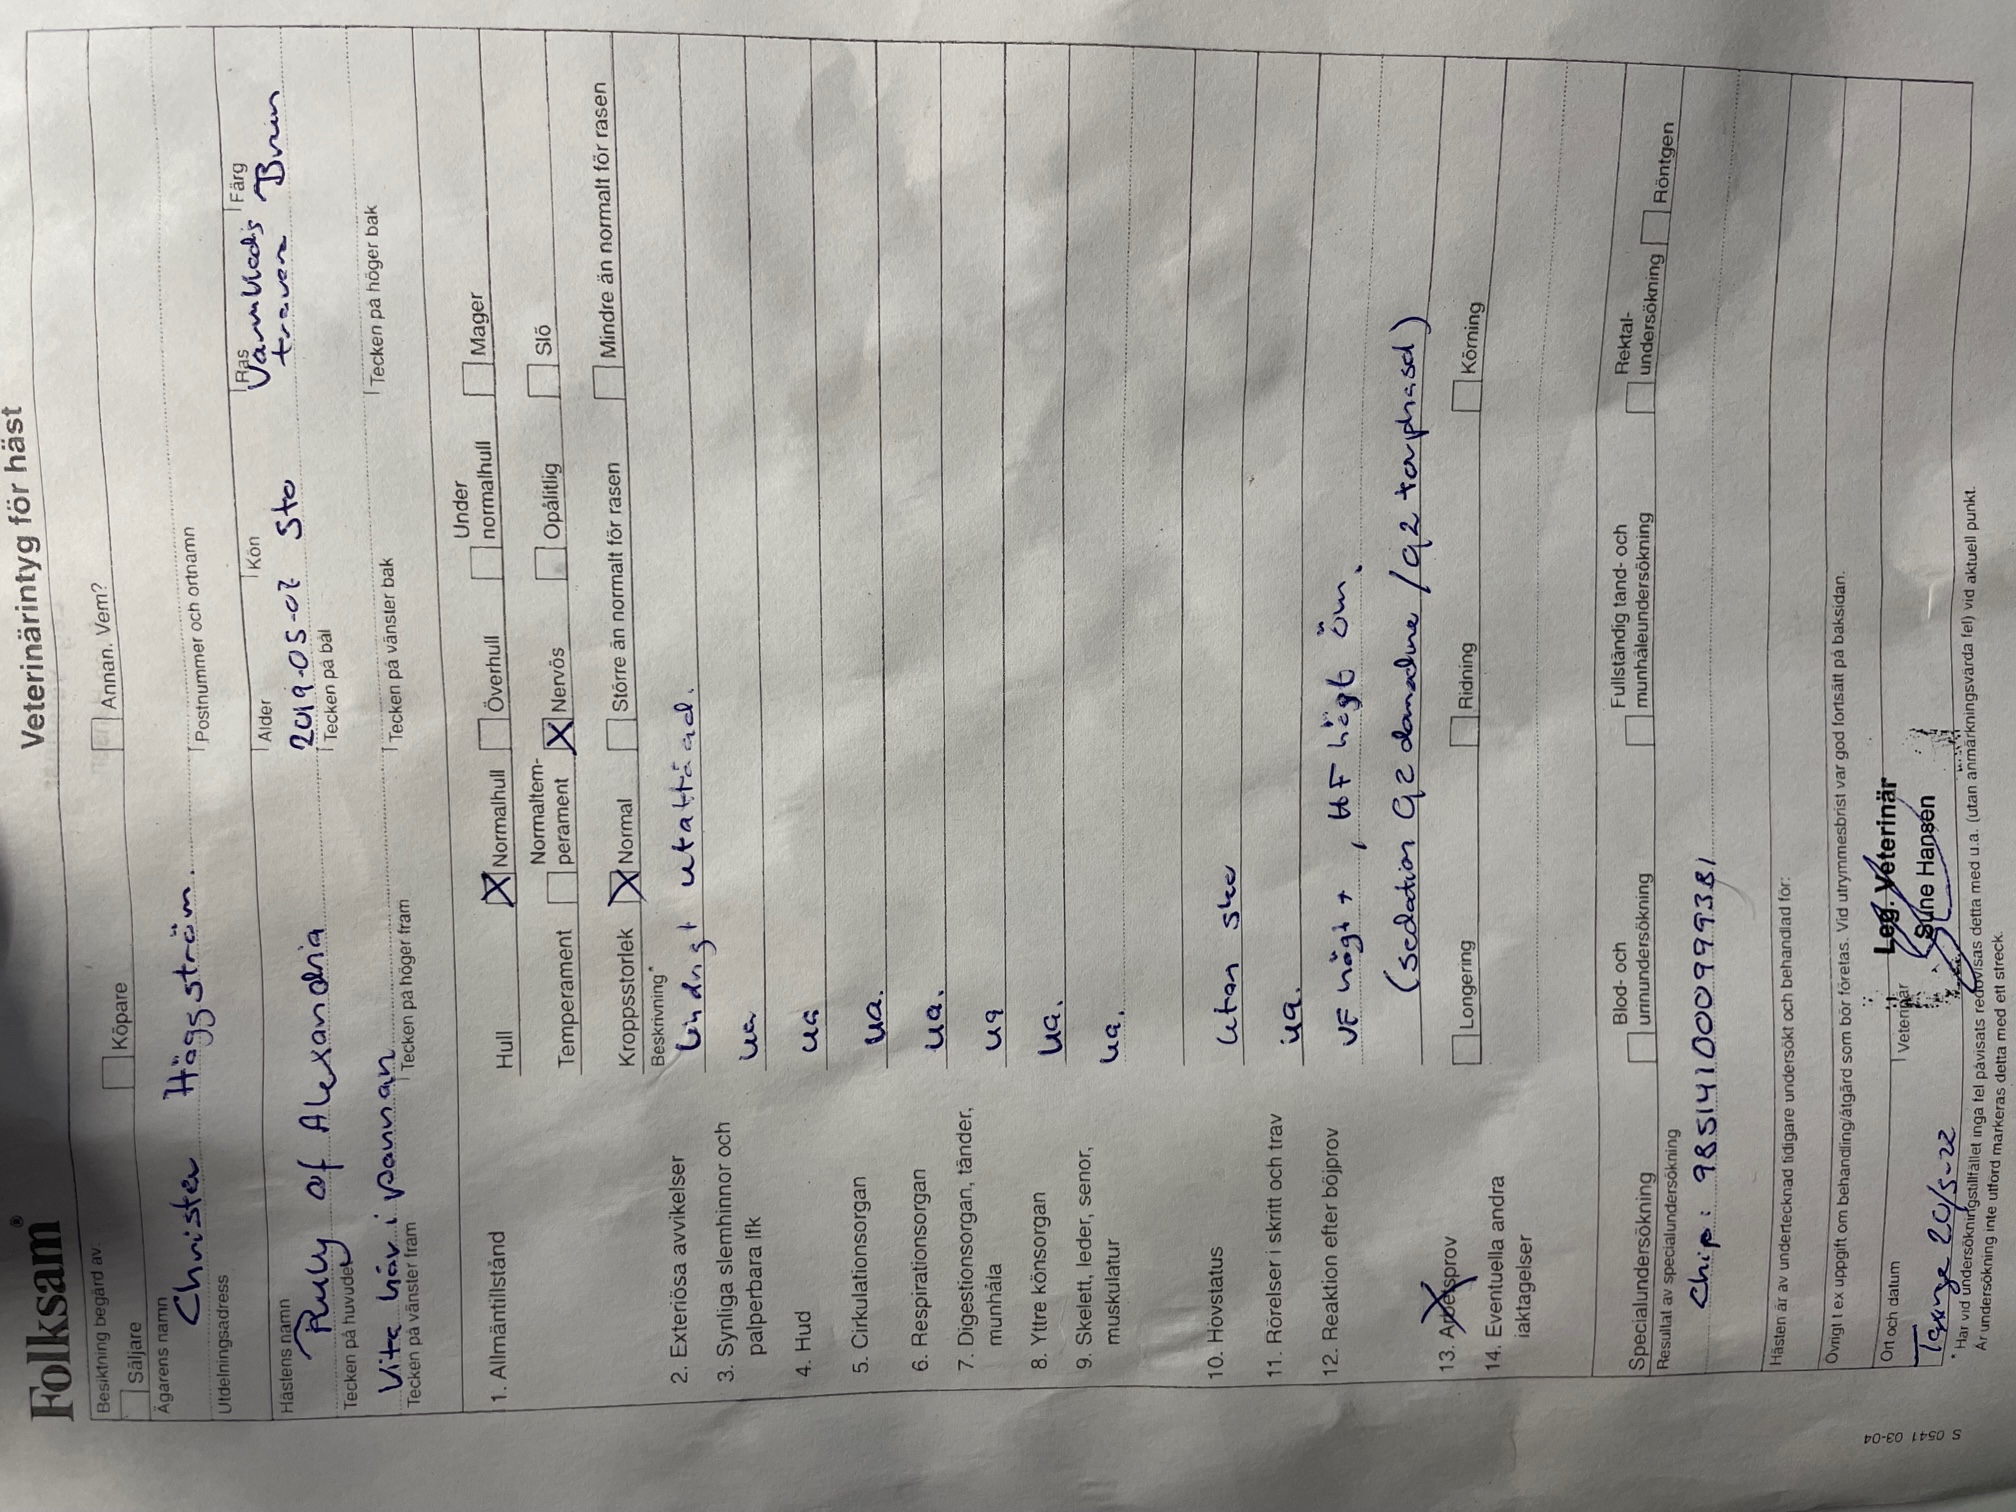 Folksam®
Veterinärintyg för häst
Besiktning begärd av:
Säljare Köpare Annan. Vem?
Ägarens namn
Christer Häggström.
Utdelningsadress Postnummer och ortnamn
Hästens namn Ålder Kön Ras Färg
Ruly of Alexandria 2019-05-07 Sto Varmblods Brun
travare
Tecken på huvudet Tecken på bål
Vita hår i pannan
Tecken på vänster fram Tecken på höger fram Tecken på vänster bak Tecken på höger bak
1. Allmäntillstånd Hull X Normalhull Överhull Under normalhull Mager
Temperament Normaltemperament X Nervös Opålitlig Slö
Kroppsstorlek X Normal Större än normalt för rasen Mindre än normalt för rasen
Beskrivning*
2. Exteriösa avvikelser lindrigt utåttåad.
3. Synliga slemhinnor och ua
palperbara lfk
4. Hud ua
5. Cirkulationsorgan ua.
6. Respirationsorgan ua.
7. Digestionsorgan, tänder, ua
munhåla
8. Yttre könsorgan ua.
9. Skelett, leder, senor, ua.
muskulatur
10. Hovstatus utan sko
11. Rörelser i skritt och trav ua.
12. Reaktion efter böjprov VF någt +, HF högt öm.
(sedation
13. Arbetsprov Longering Ridning Körning
14. Eventuella andra
iakttagelser
Specialundersökning Blod- och urinundersökning Fullständig tand- och munhåleundersökning Rektalundersökning Röntgen
Resultat av specialundersökning
Chip: 985141000999381
Hästen är av undertecknad tidigare undersökt och behandlad för:
Övrigt t ex uppgift om behandling/åtgärd som bör företas. Vid utrymmesbrist var god fortsätt på baksidan.
Ort och datum Veterinär
20/5-22
Leg. Veterinär
Sune Hansen
* Har vid undersökningstillfället inga fel påvisats redovisas detta med u.a. (utan anmärkningsvärda fel) vid aktuell punkt.
Är undersökning inte utförd markeras detta med ett streck.
S 0541 03-04